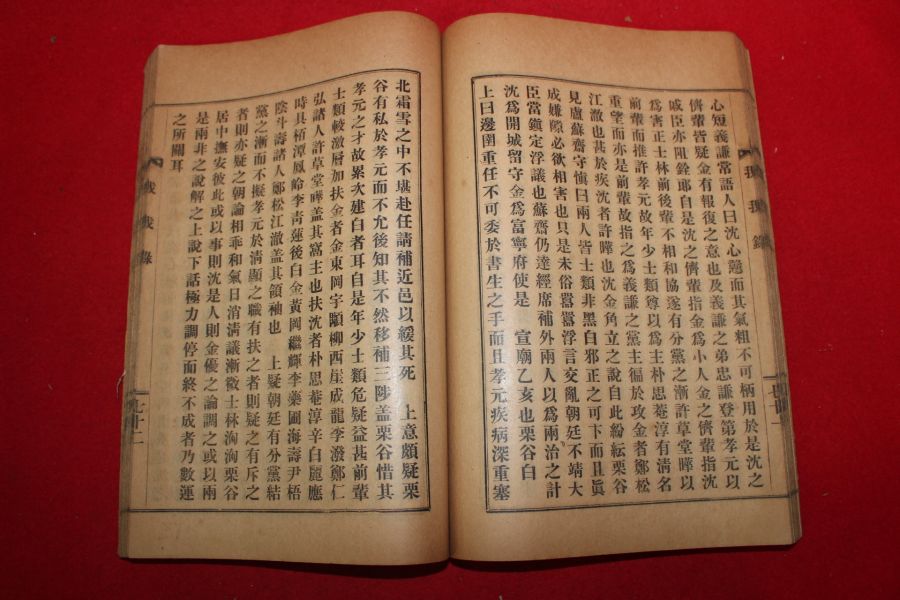 心短義謙常語人曰沈心戇而其氣粗不可柄用於是沈之
儕輩皆疑金有報復之意也及義謙之弟忠謙登第孝元以
戚臣亦阻銓郎自是沈之儕輩指金爲小人金之儕輩指沈
爲害正士林前後輩不相和協遂有分黨之漸許草堂曄以
前輩而推許孝元故年少士類尊以爲主朴思菴淳有清名
重望而亦是前輩故指之爲義謙之黨主徊於攻金者鄭松
江澈也甚於疾沈者許曄也沈金角立之說自此紛紜栗谷
見盧蘇齋守愼曰兩人皆士類非黑白邪正之可卞而且眞
成嫌隙必欲相害也只是末俗囂囂浮言交亂朝廷不靖大
臣當鎭定浮議也蘇齋仍達經席補外兩人以爲兩治之計
沈爲開城留守金爲富寧府使是 宣廟乙亥也栗谷白
上曰邊圉重任不可委於書生之手而且孝元疾病深重塞
北霜雪之中不堪赴任請補近邑以緩其死 上意頗疑栗
谷有私於孝元而不允後知其不然移補三陟盖栗谷惜其
孝元之才故累次建白者耳自是年少士類危疑益甚前輩
士類較激層加扶金者金東岡宇顒柳西崖成龍李潑鄭仁
弘諸人許草堂曄盖其窩主也扶沈者朴思菴淳辛白麗應
時具栢潭鳳齡李靑蓮後白金黃岡繼輝李藥圃海壽尹梧
陰斗壽諸人鄭松江澈盖其領袖也 上疑朝廷有分黨結
黨之漸而不擬孝元於清顯之職有扶之者則疑之有斥之
者則亦疑之朝論相乖和氣日消清議漸微士林洶洶栗谷
居中撫安彼此或以事則沈是人則金優之論調之或以兩
是兩非之說解之上說下話極力調停而終不成者乃數運
之所關耳